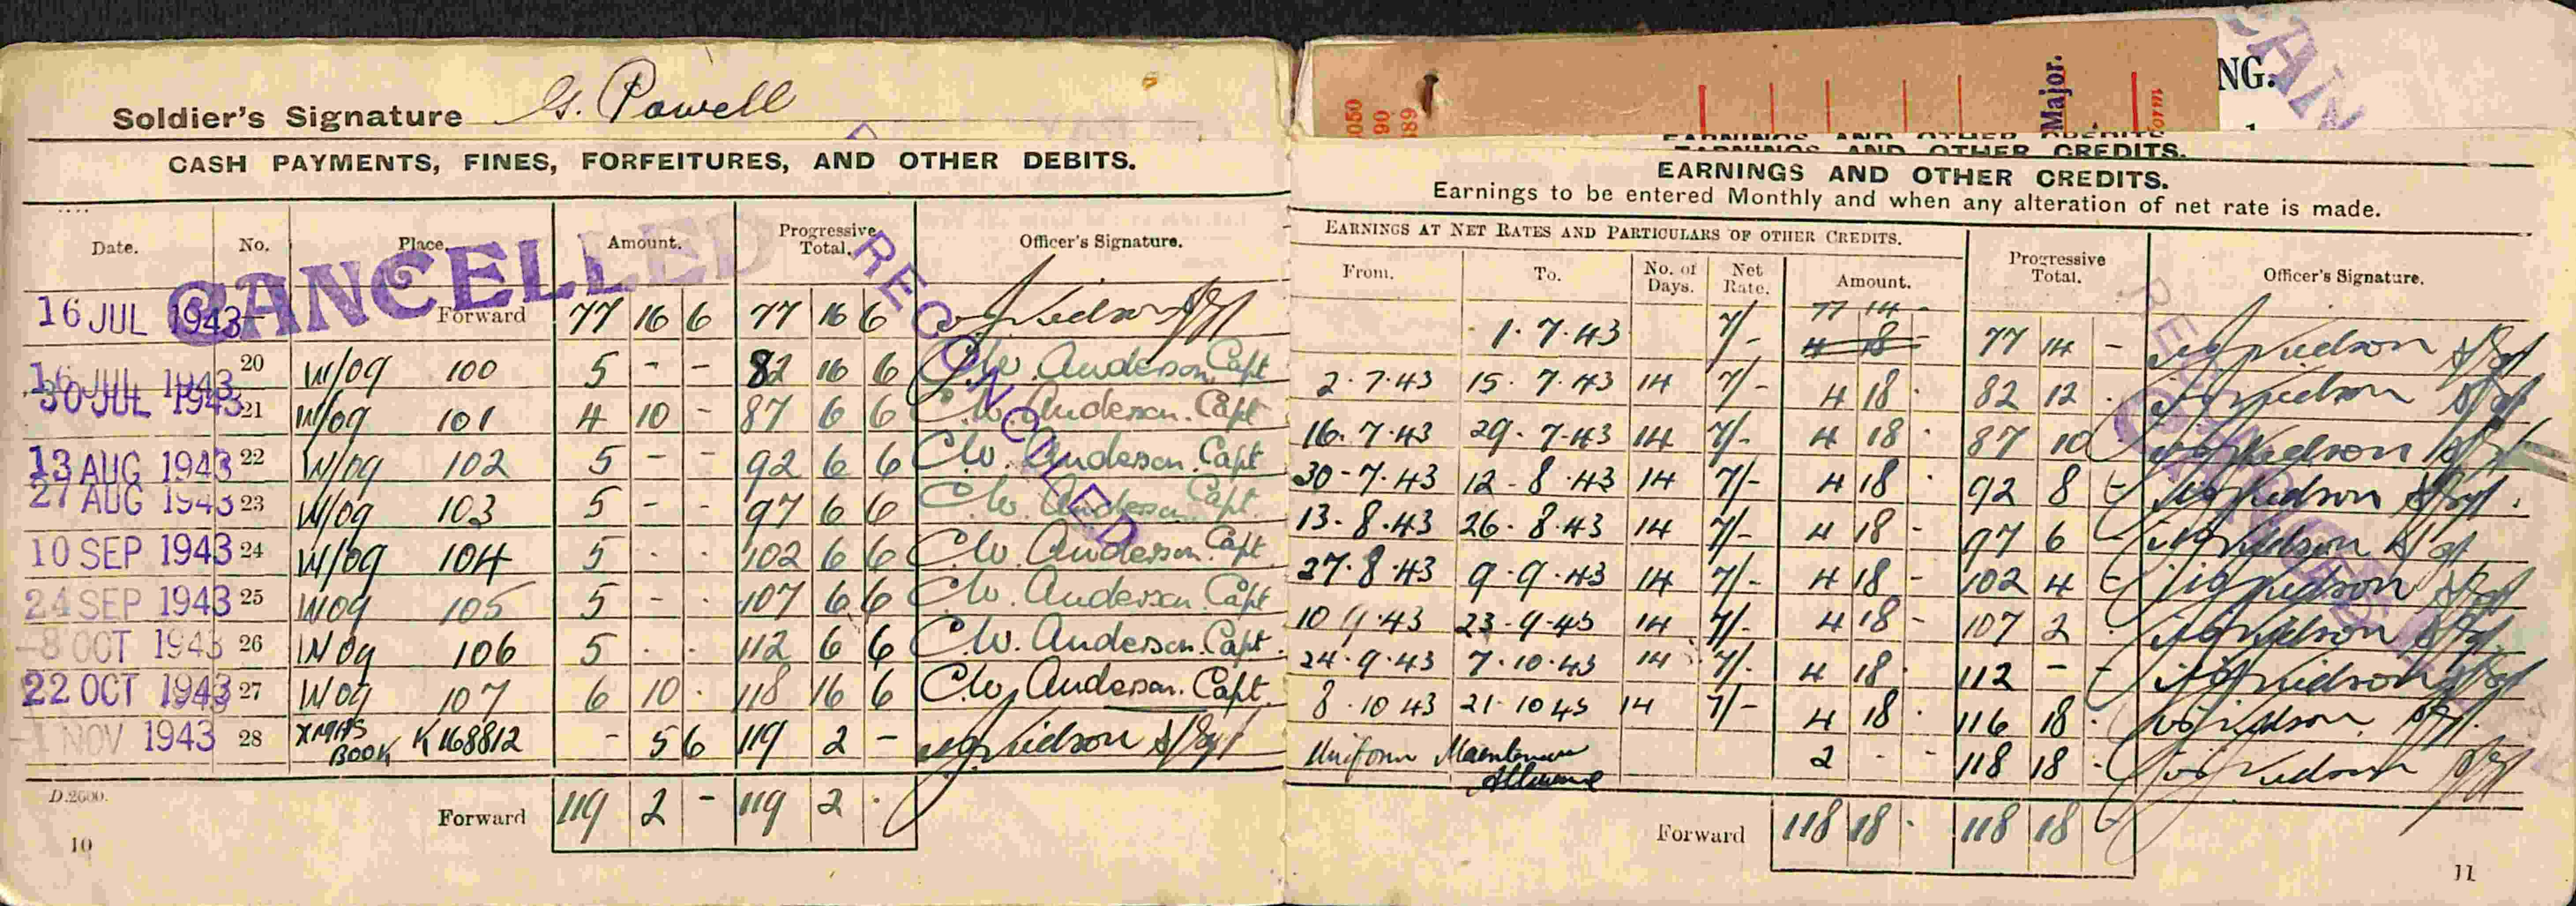 Soldier's Signature G. Powell
CASH PAYMENTS, FINES, FORFEITURES, AND OTHER DEBITS.
Date. No. Place. Amount. Progressive Total. Officer's Signature.
CANCELLED
RECONCILED
16 JUL 1943 Forward 77 16 6 77 16 6
16 JUL 1943 20 W/og 100 5 - - 82 16 6 C.W. Anderson. Capt
30 JUL 1943 21 W/og 101 4 10 - 87 6 6 C.W. Anderson. Capt
13 AUG 1943 22 W/og 102 5 - - 92 6 6 C.W. Anderson. Capt
27 AUG 1943 23 W/og 103 5 - - 97 6 6 C.W. Anderson. Capt.
10 SEP 1943 24 W/og 104 5 - - 102 6 6 C.W. Anderson. Capt
24 SEP 1943 25 W og 105 5 - - 107 6 6 C.W. Anderson. Capt
-8 OCT 1943 26 W og 106 5 - - 112 6 6 C.W. Anderson. Capt.
22 OCT 1943 27 W og 107 6 10 - 118 16 6 C.W. Anderson. Capt.
-1 NOV 1943 28 XMAS BOOK K168812 - 5 6 119 2 -
D.2600.
Forward 119 2 - 119 2 -
10
Major.
NG.
EARNINGS AND OTHER CREDITS.
EARNINGS AND OTHER CREDITS.
EARNINGS AND OTHER CREDITS.
Earnings to be entered Monthly and when any alteration of net rate is made.
EARNINGS AT NET RATES AND PARTICULARS OF OTHER CREDITS.
From. To. No. of Days. Net Rate. Amount. Progressive Total. Officer's Signature.
77 14 -
1.7.43 7/- 4 18 77 14 -
2.7.43 15.7.43 14 7/- 4 18 - 82 12 -
16.7.43 29.7.43 14 7/- 4 18 - 87 10
30-7.43 12-8.43 14 7/- 4 18 - 92 8 -
13.8.43 26.8.43 14 7/- 4 18 - 97 6 -
27.8.43 9.9.43 14 7/- 4 18 - 102 4 -
10 9.43 23-9-43 14 7/- 4 18 - 107 2 -
24.9.43 7.10.43 14 7/- 4 18 - 112 - -
8.10 43 21.10 43 14 7/- 4 18 - 116 18 -
Uniform Maintenance Allowance 2 - - 118 18 -
Forward 118 18 - 118 18 -
11